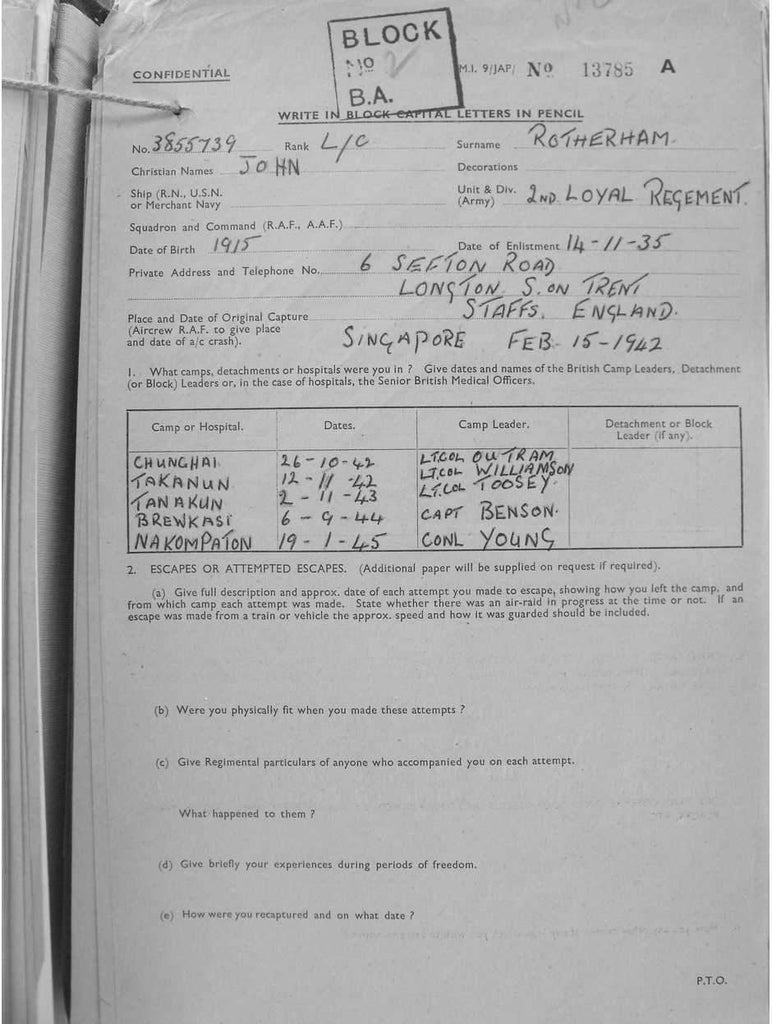 BLOCK
No 2
B.A.
CONFIDENTIAL
M.I. 9/JAP/ No 13785 A
WRITE IN BLOCK CAPITAL LETTERS IN PENCIL
No. 3855739 Rank L/C Surname ROTHERHAM.
Christian Names JOHN Decorations
Ship (R.N., U.S.N. or Merchant Navy Unit & Div. (Army) 2ND LOYAL REGEMENT.
Squadron and Command (R.A.F., A.A.F.)
Date of Birth 1915 Date of Enlistment 14-11-35
Private Address and Telephone No. 6 SEFTON ROAD
LONGTON S. ON TRENT
STAFFS. ENGLAND.
Place and Date of Original Capture
(Aircrew R.A.F. to give place
and date of a/c crash). SINGAPORE FEB-15-1942
1. What camps, detachments or hospitals were you in ? Give dates and names of the British Camp Leaders, Detachment
(or Block) Leaders or, in the case of hospitals, the Senior British Medical Officers.
Camp or Hospital. Dates. Camp Leader. Detachment or Block Leader (if any).
CHUNGHAI 26-10-42 LT.COL OUTRAM
TAKANUN 12-11-42 LT.COL WILLIAMSON
TANAKUN 2-11-43 LT.COL TOOSEY.
BREWKASI 6-9-44 CAPT BENSON.
NAKOMPATON 19-1-45 CONL YOUNG
2. ESCAPES OR ATTEMPTED ESCAPES. (Additional paper will be supplied on request if required).
(a) Give full description and approx. date of each attempt you made to escape, showing how you left the camp, and
from which camp each attempt was made. State whether there was an air-raid in progress at the time or not. If an
escape was made from a train or vehicle the approx. speed and how it was guarded should be included.
(b) Were you physically fit when you made these attempts ?
(c) Give Regimental particulars of anyone who accompanied you on each attempt.
What happened to them ?
(d) Give briefly your experiences during periods of freedom.
(e) How were you recaptured and on what date ?
P.T.O.